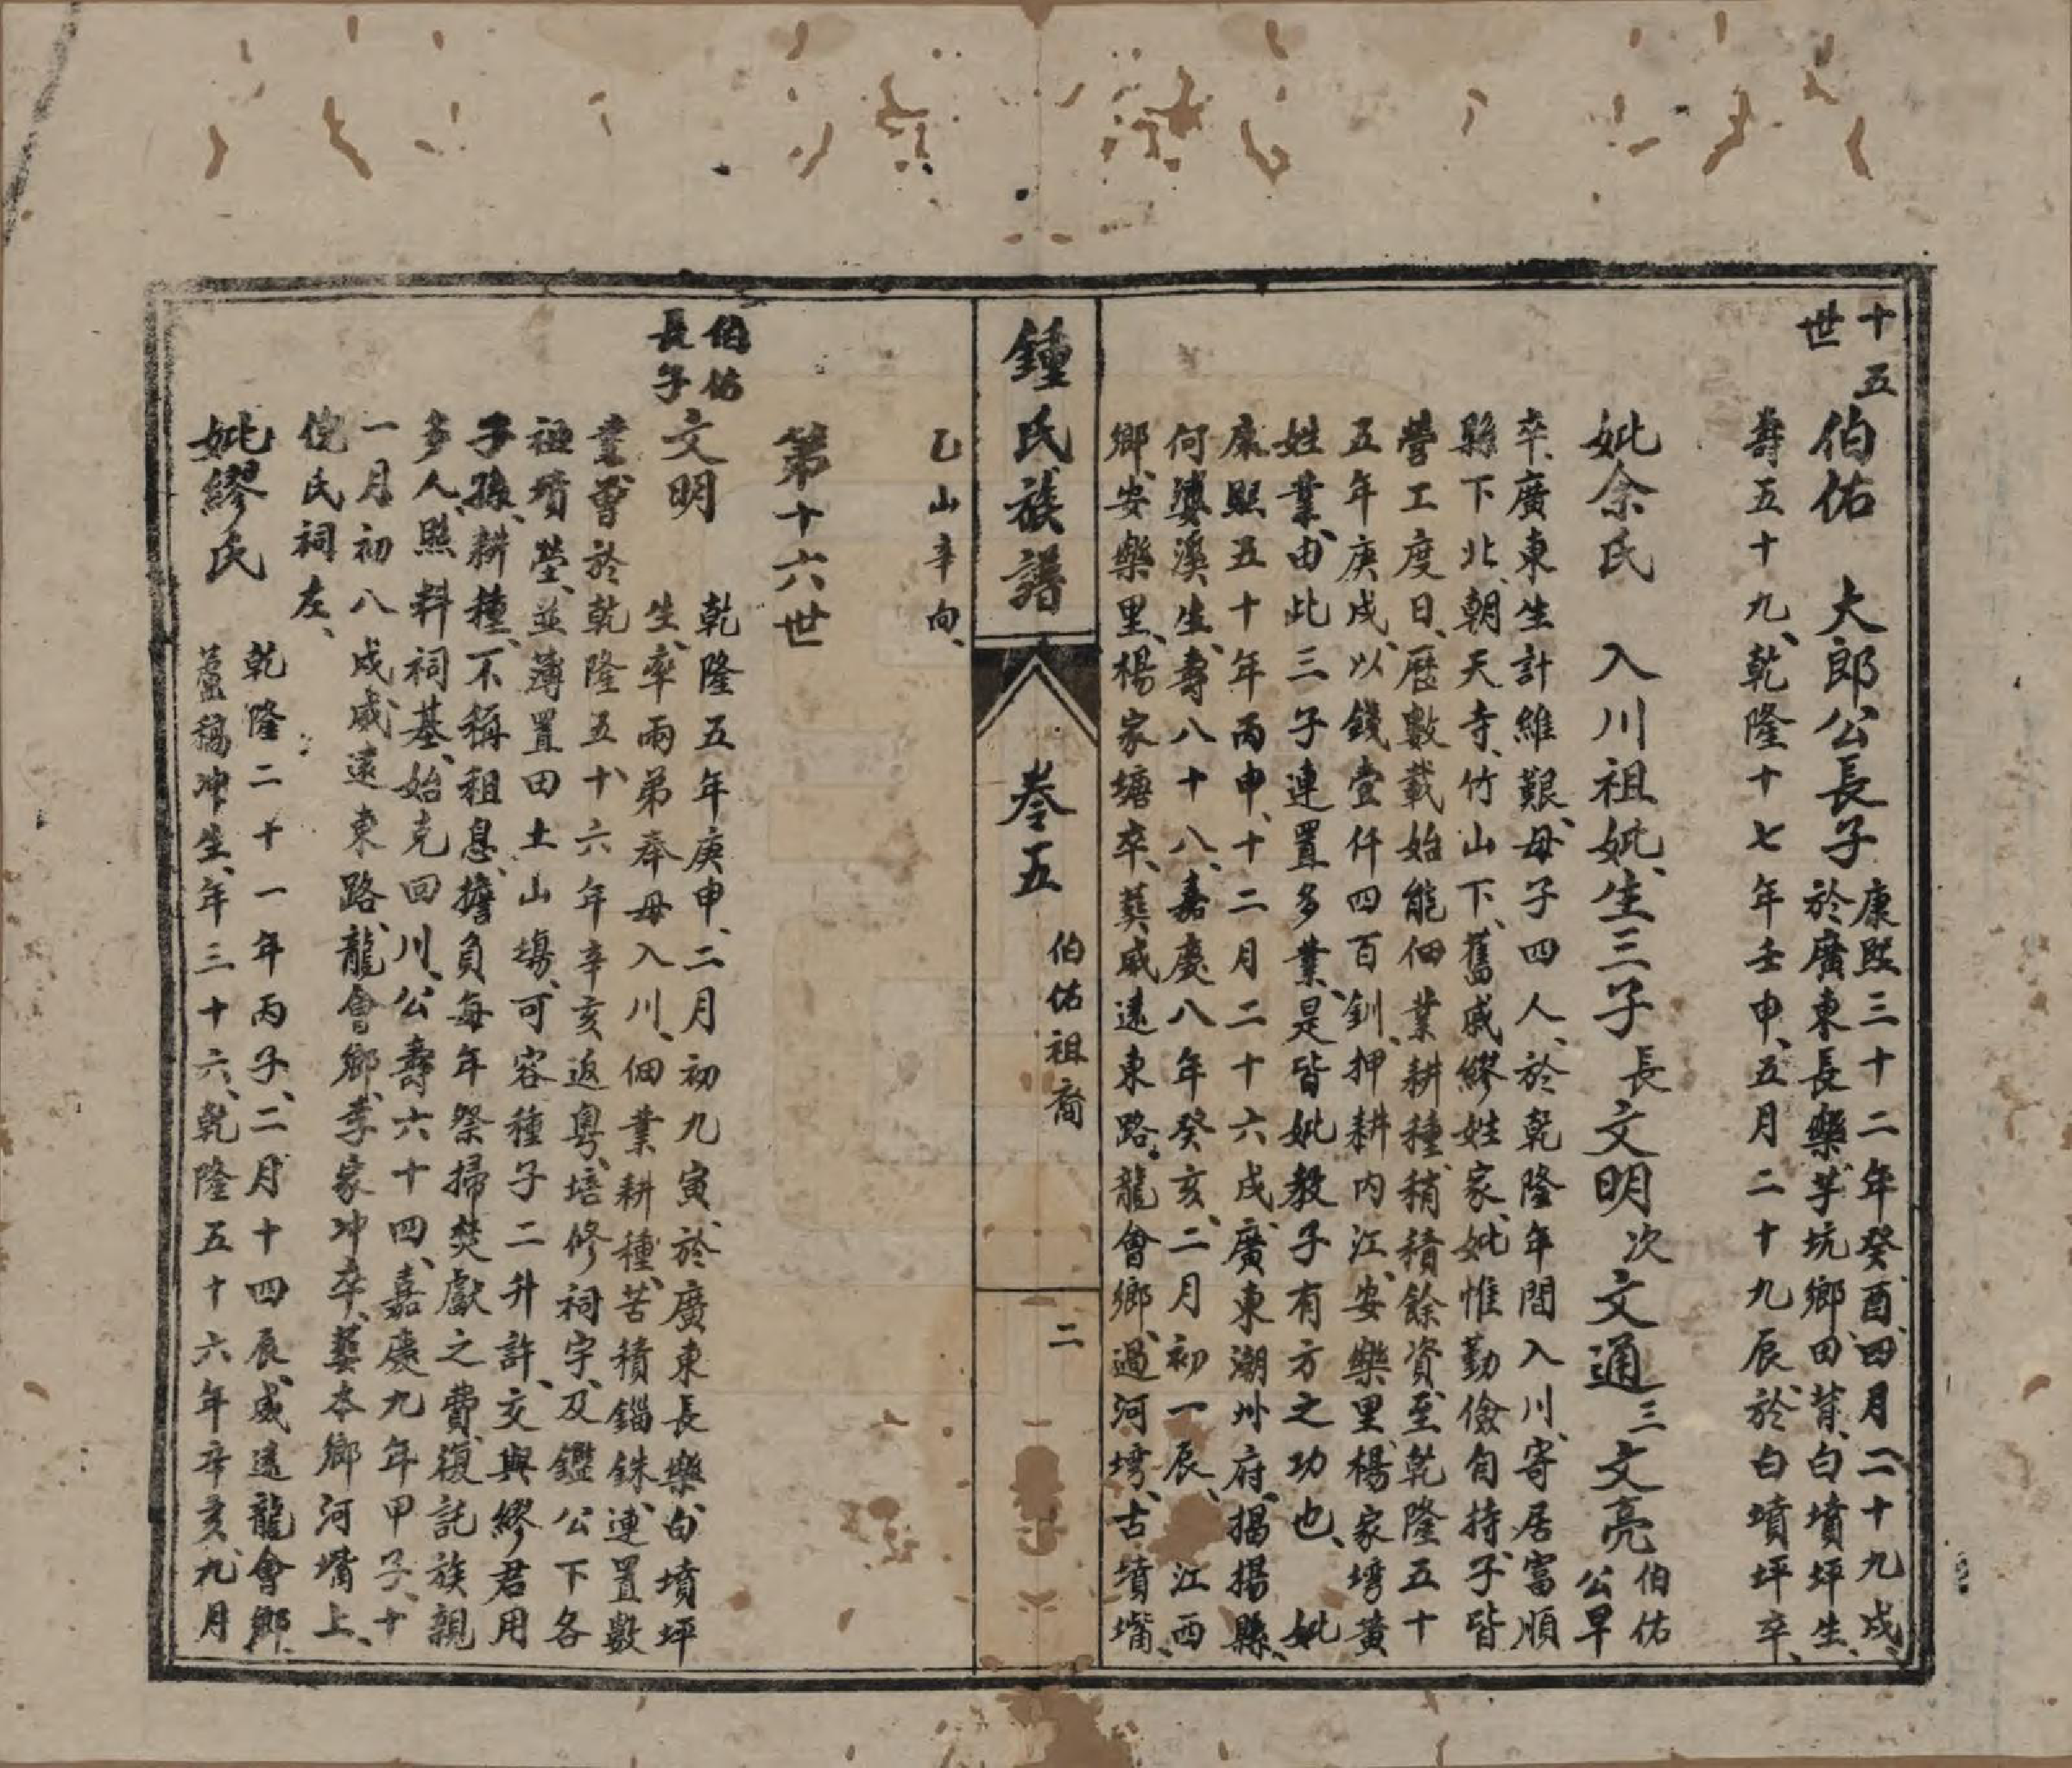 十五世
伯佑　大郎公長子康熙三十二年癸酉、四月二十九戌、
於廣東長樂、芋坑鄉、田背、白墳坪生、
壽五十九、乾隆十七年壬申、五月二十九辰、於白墳坪卒、
妣余氏　入川祖妣、生三子長文明次文通三文亮伯佑公早
卒、廣東生計維艱、母子四人、於乾隆年間入川、寄居富順
縣下北、朝天寺、竹山下、舊戚繆姓家、妣惟勤儉自持、子皆
營工度日、歷數載始能佃業耕種、稍積餘資、至乾隆五十
五年庚戌、以錢壹仟四百釧、押耕內江、安樂里、楊家塆黃
姓業、由此三子連置多業、是皆妣教子有方之功也、　妣
康熙五十年丙申、十二月二十六戌、廣東潮州府、揭揚縣、
何婆溪生、壽八十八、嘉慶八年癸亥、二月初一辰、　江西
鄉、安樂里、楊家塘卒、葬威遠東路、龍會鄉、過河塆、古墳嘴、
乙山辛向、
鍾氏族譜
卷五
伯佑祖裔
二
第十六世
伯佑長子
文明　乾隆五年庚申、二月初九寅、於廣東長樂、白墳坪
生、率兩弟奉母入川、佃業耕種、苦積錙銖、連置數
業、曾於乾隆五十六年辛亥返粵、培修祠宇、及鑑公下各
祖墳塋、並薄置田土山塲、可容種子二升許、交與繆君用
子孫、耕種、不稱租息、擔負每年祭掃焚獻之費、復託族親
多人、照料祠基、始克回川、公壽六十四、嘉慶九年甲子、十
一月初八戌威遠東路、龍會鄉、李家冲卒、葬本鄉河嘴上、
倪氏祠左、
妣繆氏　乾隆二十一年丙子、二月十四辰、威遠龍會鄉、
蘆稿冲生、年三十六、乾隆五十六年辛亥、九月